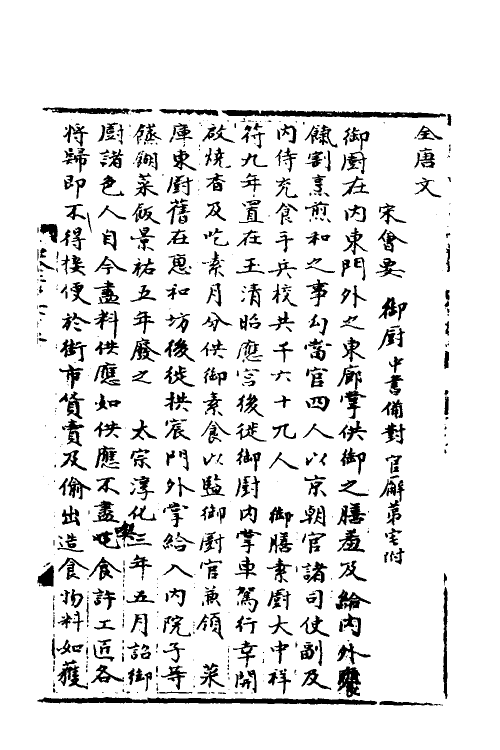 全唐文
宋會要 御厨 中書備對 官廨第宅附
御厨在內東門外之東廊掌供御之膳羞及給內外饔
餼割烹煎和之事勾當官四人以京朝官諸司使副及
內侍充食手兵校共千六十九人 御膳素厨大中祥
符九年置在玉清昭應宮後徙御厨內掌車駕行幸開
啟燒香及吃素月分供御素食以監御厨官兼領 菜
庫東厨舊在惠和坊後徙拱宸門外掌給入內院子等
餚餬菜飯景祐五年廢之 太宗淳化三年五月詔御
厨諸色人自今盡料供應如供應不盡喫食許工匠各
將歸即不得接便於街市貨賣及偷出造食物料如獲